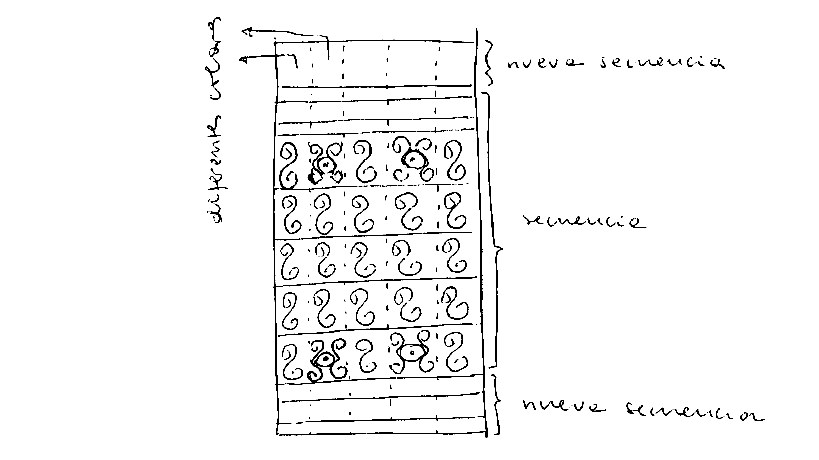 diferente colors
nueva secuencia
secuencia
nueva secuencia